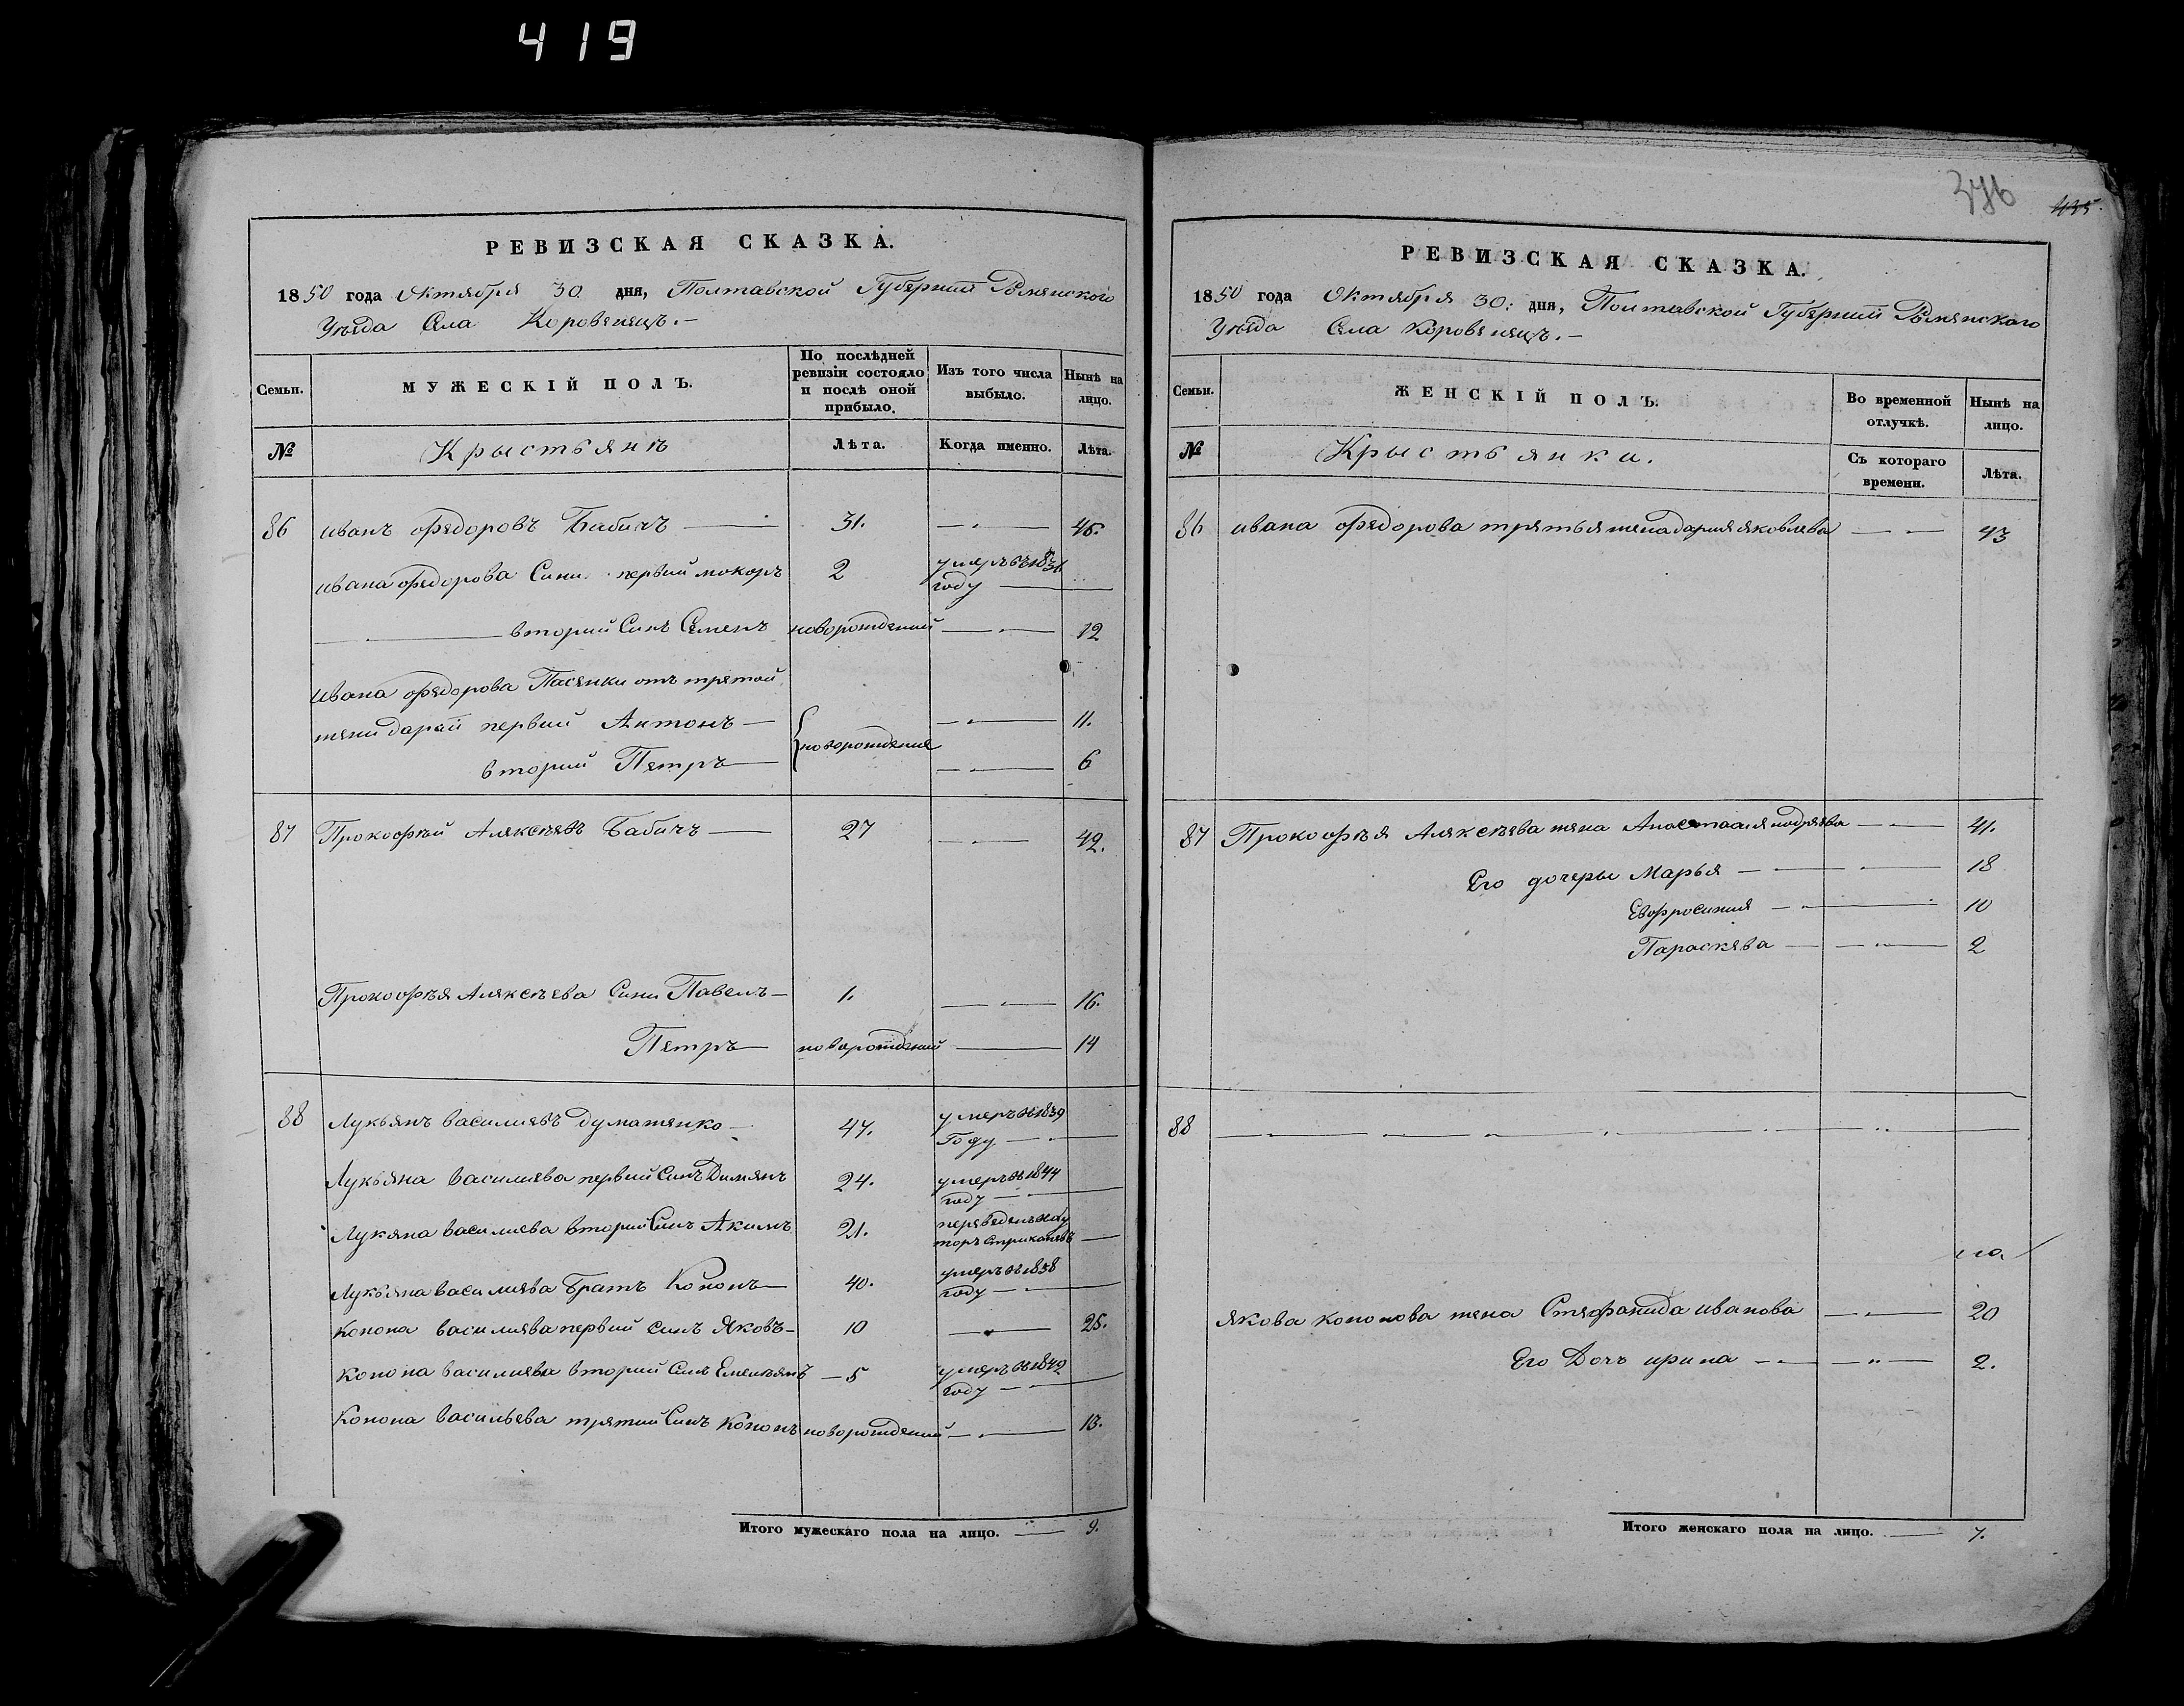 419
376
435
РЕВИЗСКАЯ СКАЗКА.
1850 года Октября 30 дня, Полтавской Губерніи Роменского
Уезда Села Коровенецъ.
Семьи.
МУЖЕСКІЙ ПОЛЪ.
По послѣдней ревизіи состояло и послѣ оной прибыло.
Изъ того числа выбыло.
Нынѣ на лицо.
№ Крыстьянъ Лѣта. Когда именно. Лѣта.
86 иванъ Федоровъ Бабичъ 31. 46.
ивана Федорова Сини первий мокоръ 2 умеръ въ 1836 году
вторий Синъ Семенъ новорождений 12
ивана Федорова Пасенки отъ третой
жени дарии первий Антонъ 11.
{новорождение
вторий Петръ 6
87 Прокофѣй Алексѣевъ Бабичъ 27 42.
Прокофѣя Алексѣева Сини Павелъ 1. 16.
Петръ новорождений 14
88 Лукьянъ василиевъ думаженко 47. умеръ въ 1839 Году
Лукьяна василиева первий Синъ Димянъ 24. умеръ въ 1844 году
Лукяна василиева вторий Синъ Акимъ 21. переведенъ
Лукьяна василиева Братъ Кононъ 40. умеръ въ 1838 году
Конона василиева первий синъ Яковъ 10 25.
Конона василиева вторий Синъ Емельянъ 5 умеръ въ 1842 году
Конона васильева третий Синъ Кононъ новорождений 13.
Итого мужескаго пола на лицо. 9.
РЕВИЗСКАЯ СКАЗКА.
1850 года Октября 30: дня, Полтавской Губерніи Роменского
Уезда Села Коровенецъ.
Семьи.
ЖЕНСКІЙ ПОЛЪ.
Во временной отлучкѣ.
Нынѣ на лицо.
№ Крыстьянки. Съ котораго времени. Лѣта.
86 ивана Федорова третья жена дария яковлева 43
87 Прокофѣя Алексѣева жена Анастасия 41.
Его дочеры Марья 18
Евфросиния 10
Параскева 2
88
якова кононова жена Стефанида иванова 20
Его Дочъ ирина 2.
Итого женскаго пола на лицо. 7.